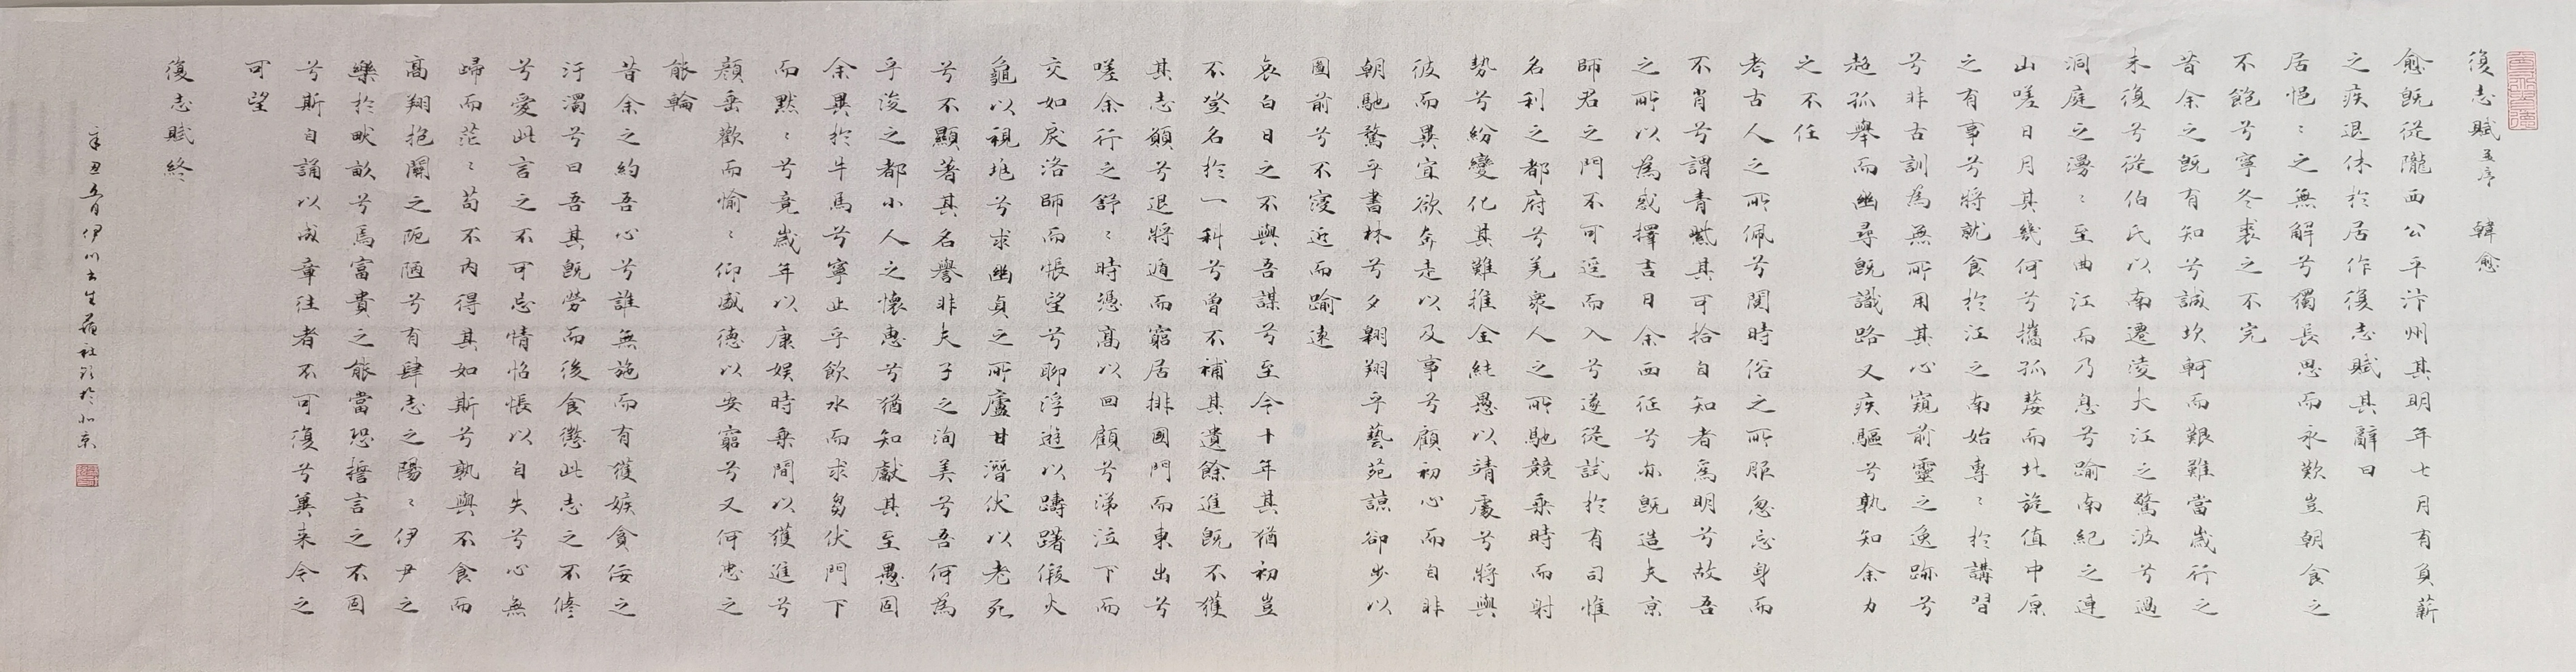 復志賦 並序 韓愈
愈既從隴西公平汴州其明年七月有負薪
之疾退休於居作復志賦其辭曰
居悒〻之無解兮獨長思而永歎豈朝食之
不飽兮寧冬裘之不完
昔余之既有知兮誠坎軻而艱難當歲行之
未復兮從伯氏以南遷淩大江之驚波兮過
洞庭之漫〻至曲江而乃息兮踰南紀之連
山嗟日月其幾何兮攜孤嫠而北旋值中原
之有事兮將就食於江之南始專〻於講習
兮非古訓為無所用其心窺前靈之逸跡兮
超孤舉而幽尋既識路又疾驅兮孰知余力
之不任
考古人之所佩兮閱時俗之所服忽忘身而
不肖兮謂青紫其可拾自知者為明兮故吾
之所以為惑擇吉日余西征兮亦既造夫京
師君之門不可逕而入兮遂從試於有司惟
名利之都府兮羌衆人之所馳競乘時而射
勢兮紛變化其難推全純愚以靖處兮將與
彼而異宜欲奔走以及事兮顧初心而自非
朝馳騖乎書林兮夕翱翔乎藝苑諒卻步以
圖前兮不寖近而踰遠
哀白日之不與吾謀兮至今十年其猶初豈
不登名於一科兮曾不補其遺餘進既不獲
其志願兮退將遁而窮居排國門而東出兮
嗟余行之舒〻時憑高以回顧兮涕泣下而
交如戾洛師而悵望兮聊浮遊以躊躇假大
龜以視兆兮求幽貞之所廬甘潛伏以老死
兮不顯著其名譽非夫子之洵美兮吾何為
乎浚之都小人之懷惠兮猶知獻其至愚固
余異於牛馬兮寧止乎飲水而求芻伏門下
而默〻兮竟歲年以康娛時乘間以獲進兮
顏垂歡而愉〻仰盛德以安窮兮又何忠之
能輸
昔余之約吾心兮誰無施而有獲嫉貪佞之
汙濁兮曰吾其既勞而後食懲此志之不修
兮愛此言之不可忘情怊悵以自失兮心無
歸而茫〻苟不內得其如斯兮孰與不食而
高翔抱關之阨陋兮有肆志之陽〻伊尹之
樂於畎畝兮焉富貴之能當恐誓言之不固
兮斯自誦以成章往者不可復兮冀來今之
可望
復志賦終
辛丑 伊川 生 社 於北京